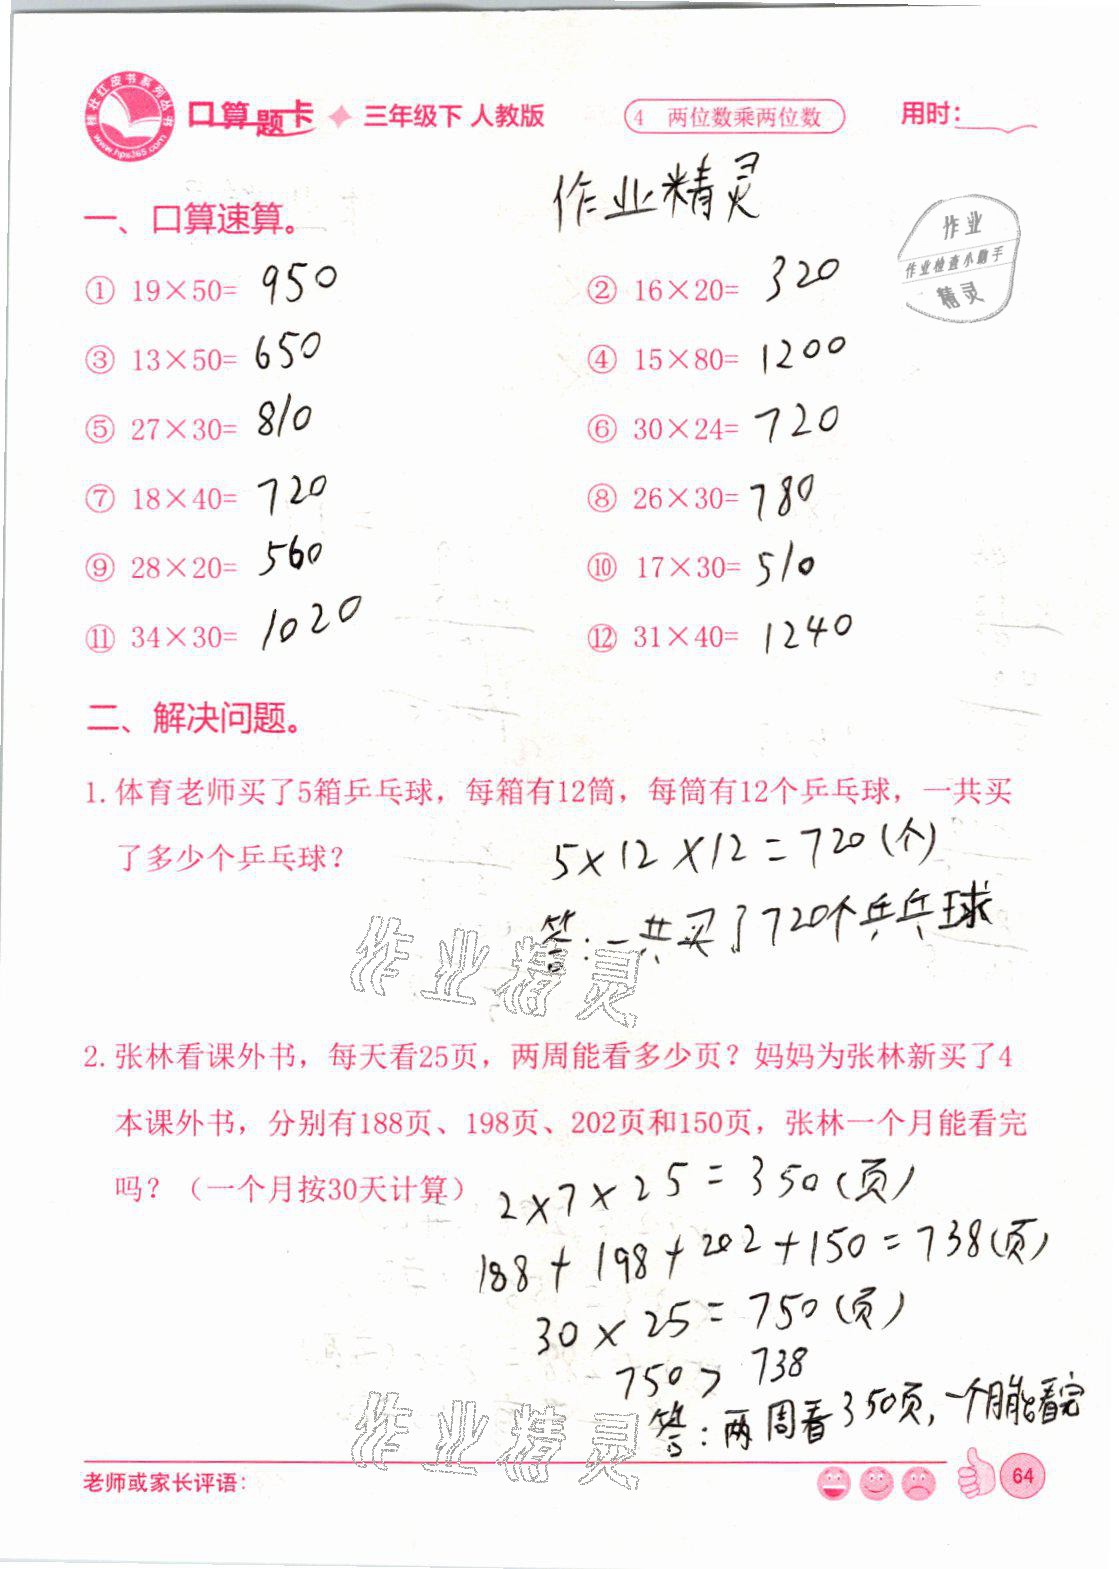 桂壮红皮书系列丛书
www.hps365.com
口算题卡 三年级下 人教版
4 两位数乘两位数
用时:
作业精灵
一、口算速算。
作业
作业检查小助手
精灵
① 19×50= 950
② 16×20= 320
③ 13×50= 650
④ 15×80= 1200
⑤ 27×30= 810
⑥ 30×24= 720
⑦ 18×40= 720
⑧ 26×30= 780
⑨ 28×20= 560
⑩ 17×30= 510
⑪ 34×30= 1020
⑫ 31×40= 1240
二、解决问题。
1. 体育老师买了5箱乒乓球，每箱有12筒，每筒有12个乒乓球，一共买
了多少个乒乓球？
5×12×12=720(个)
答：一共买了720个乒乓球
作业精灵
2. 张林看课外书，每天看25页，两周能看多少页？妈妈为张林新买了4
本课外书，分别有188页、198页、202页和150页，张林一个月能看完
吗？（一个月按30天计算）
2×7×25=350(页)
188+198+202+150=738(页)
30×25=750(页)
750>738
答：两周看350页，一个月能看完
作业精灵
老师或家长评语：
64